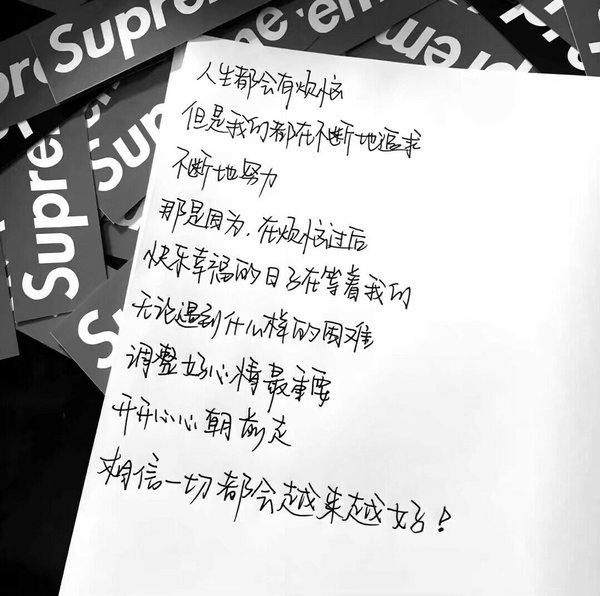 Supreme
Supreme
人生都会有烦恼
但是我们都在不断地追求
不断地努力
那是因为,在烦恼过后
快乐幸福的日子在等着我们
无论遇到什么样的困难
调整好心情最重要
开开心心朝前走
相信一切都会越来越好!